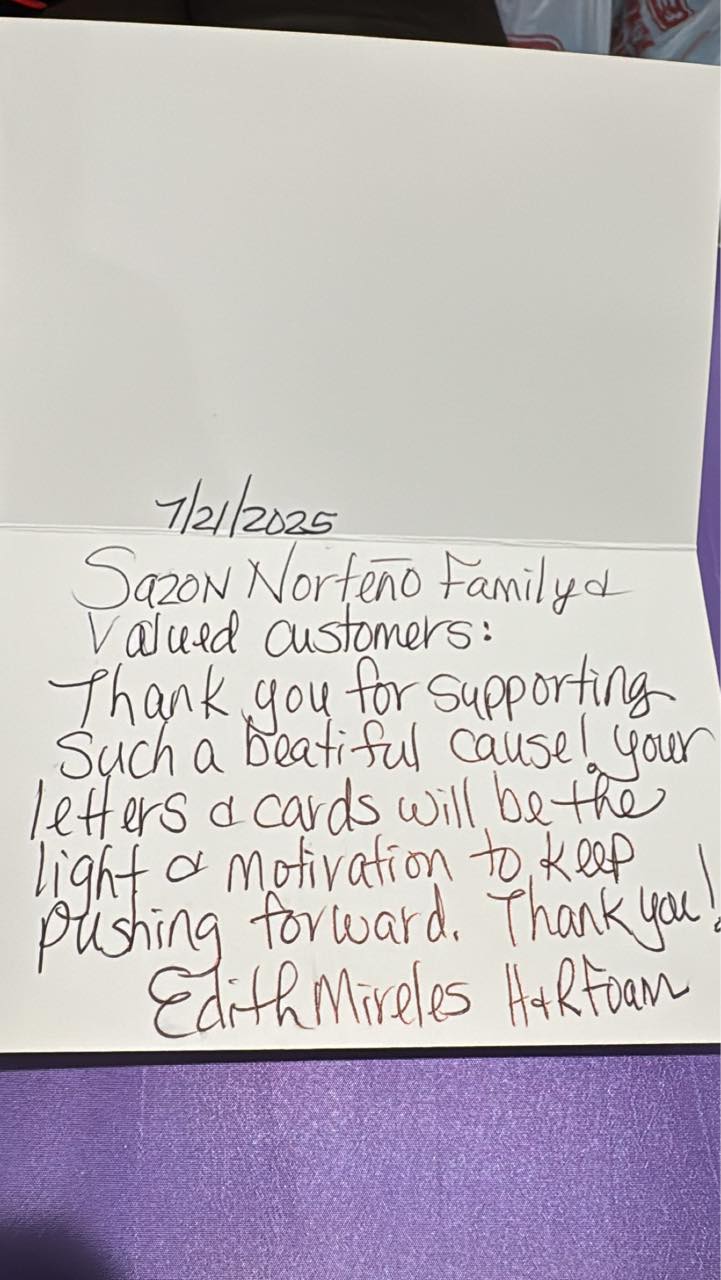 7/21/2025
Sazon Norteño Family &
Valued customers:
Thank you for supporting
Such a beatiful cause! your
letters & cards will be the
light & motivation to keep
pushing forward. Thank you!
Edith Mireles H&R Foam